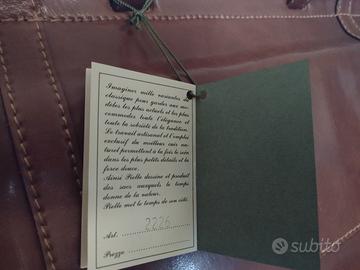 Imaginer mille variantes de
classique pour garder aux mo-
dèles les plus actuels et les plus
commodes toute l'élégance et
toute la sobriété de la tradition.
Le travail artisanal et l'emploi
exclusif du meilleur cuir na-
turel permettent à la fois le soin
dans les plus petits détails et la
force douce.
Ainsi Pielle dessine et produit
des sacs auxquels le temps
donne de la valeur.
Pielle met le temps de son côté.
Art. 2226
Prezzo
subito